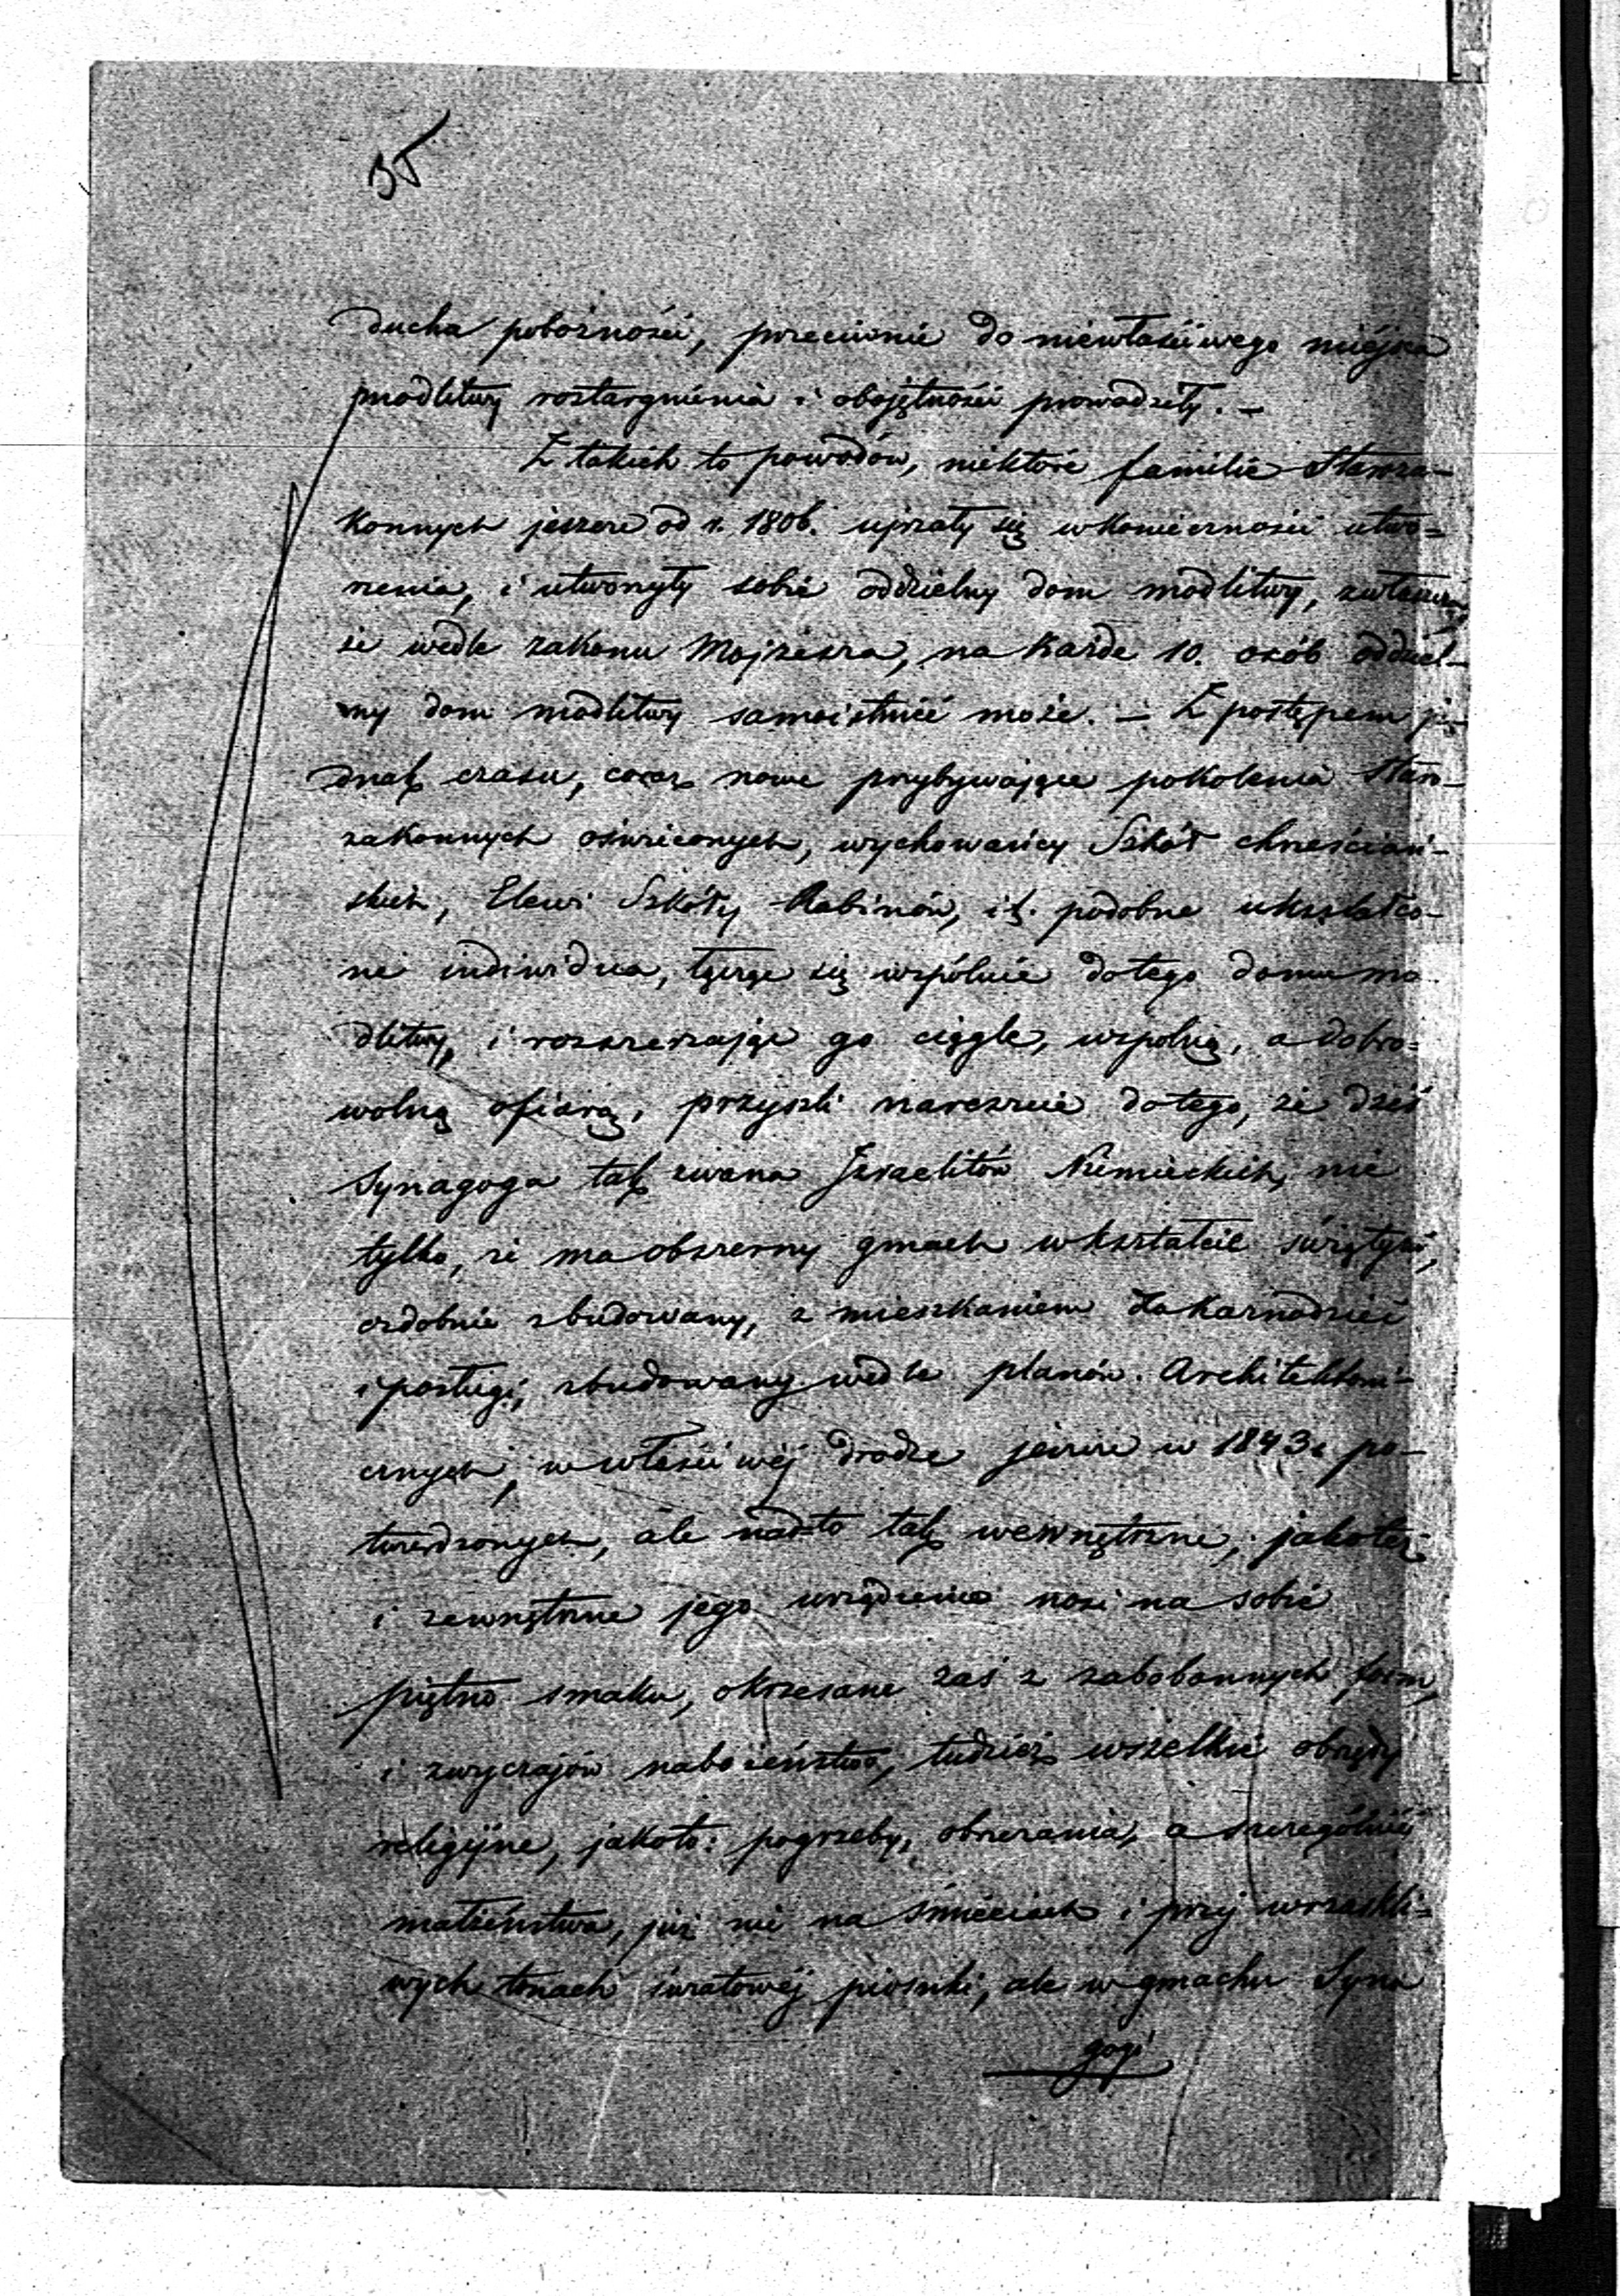 35
ducha pobożności, przeciwnie do niewłaściwego miéjsca
modlitwy roztargnienia i obojętności prowadziły. –
Z takich to powodów, niektóre familie Staroza-
konnych jeszcze od r. 1806. ujrzały się w konieczności utwo-
rzenia, i utworzyły sobie oddzielny dom modlitwy, zwłaszcza
że wedle zakonu Mojżesza, na każde 10. osób oddziel-
ny dom modlitwy samoistnieć może. – Z postępem je-
dnak czasu, coraz nowe przybywające pokolenia Staro-
zakonnych oświeconych, wychowańcy Szkół chrześciań-
skich, Elewi Szkóły Rabinów, i t. podobne ukształco-
ne indiwidua, łącząc się wspólnie do tego domu mo
dlitwy, i rozszerzając go ciągle, wspólną, a dobro-
wolną ofiarą, przyszli nareszcie do tego, że dziś
Synagoga tak zwana Izraelitów Niemieckich, nie
tylko, że ma obszerny gmach w kształcie świątyni,
ozdobnie zbudowany, z mieszkaniem dla Kaznodziei
i posługi, zbudowany wedle planów Architektoni-
cznych, w właściwéj drodze jeszcze w 1843 r. po-
twierdzonych, ale nadto tak wewnętrzne, jakoteż
i zewnętrzne jego urządzenie nosi na sobie
piętno smaku, okrzesane zaś z zabobonnych form,
i zwyczajów nabożeństwo, tudzież wszelkie obrzędy
religijne, jakoto: pogrzeby, obrzezania, a szczególniej
małżeństwa, już nie na śmieciach i przy wrzaskli-
wych tonach światowéj piosnki, ale w gmachu Syna
gogi